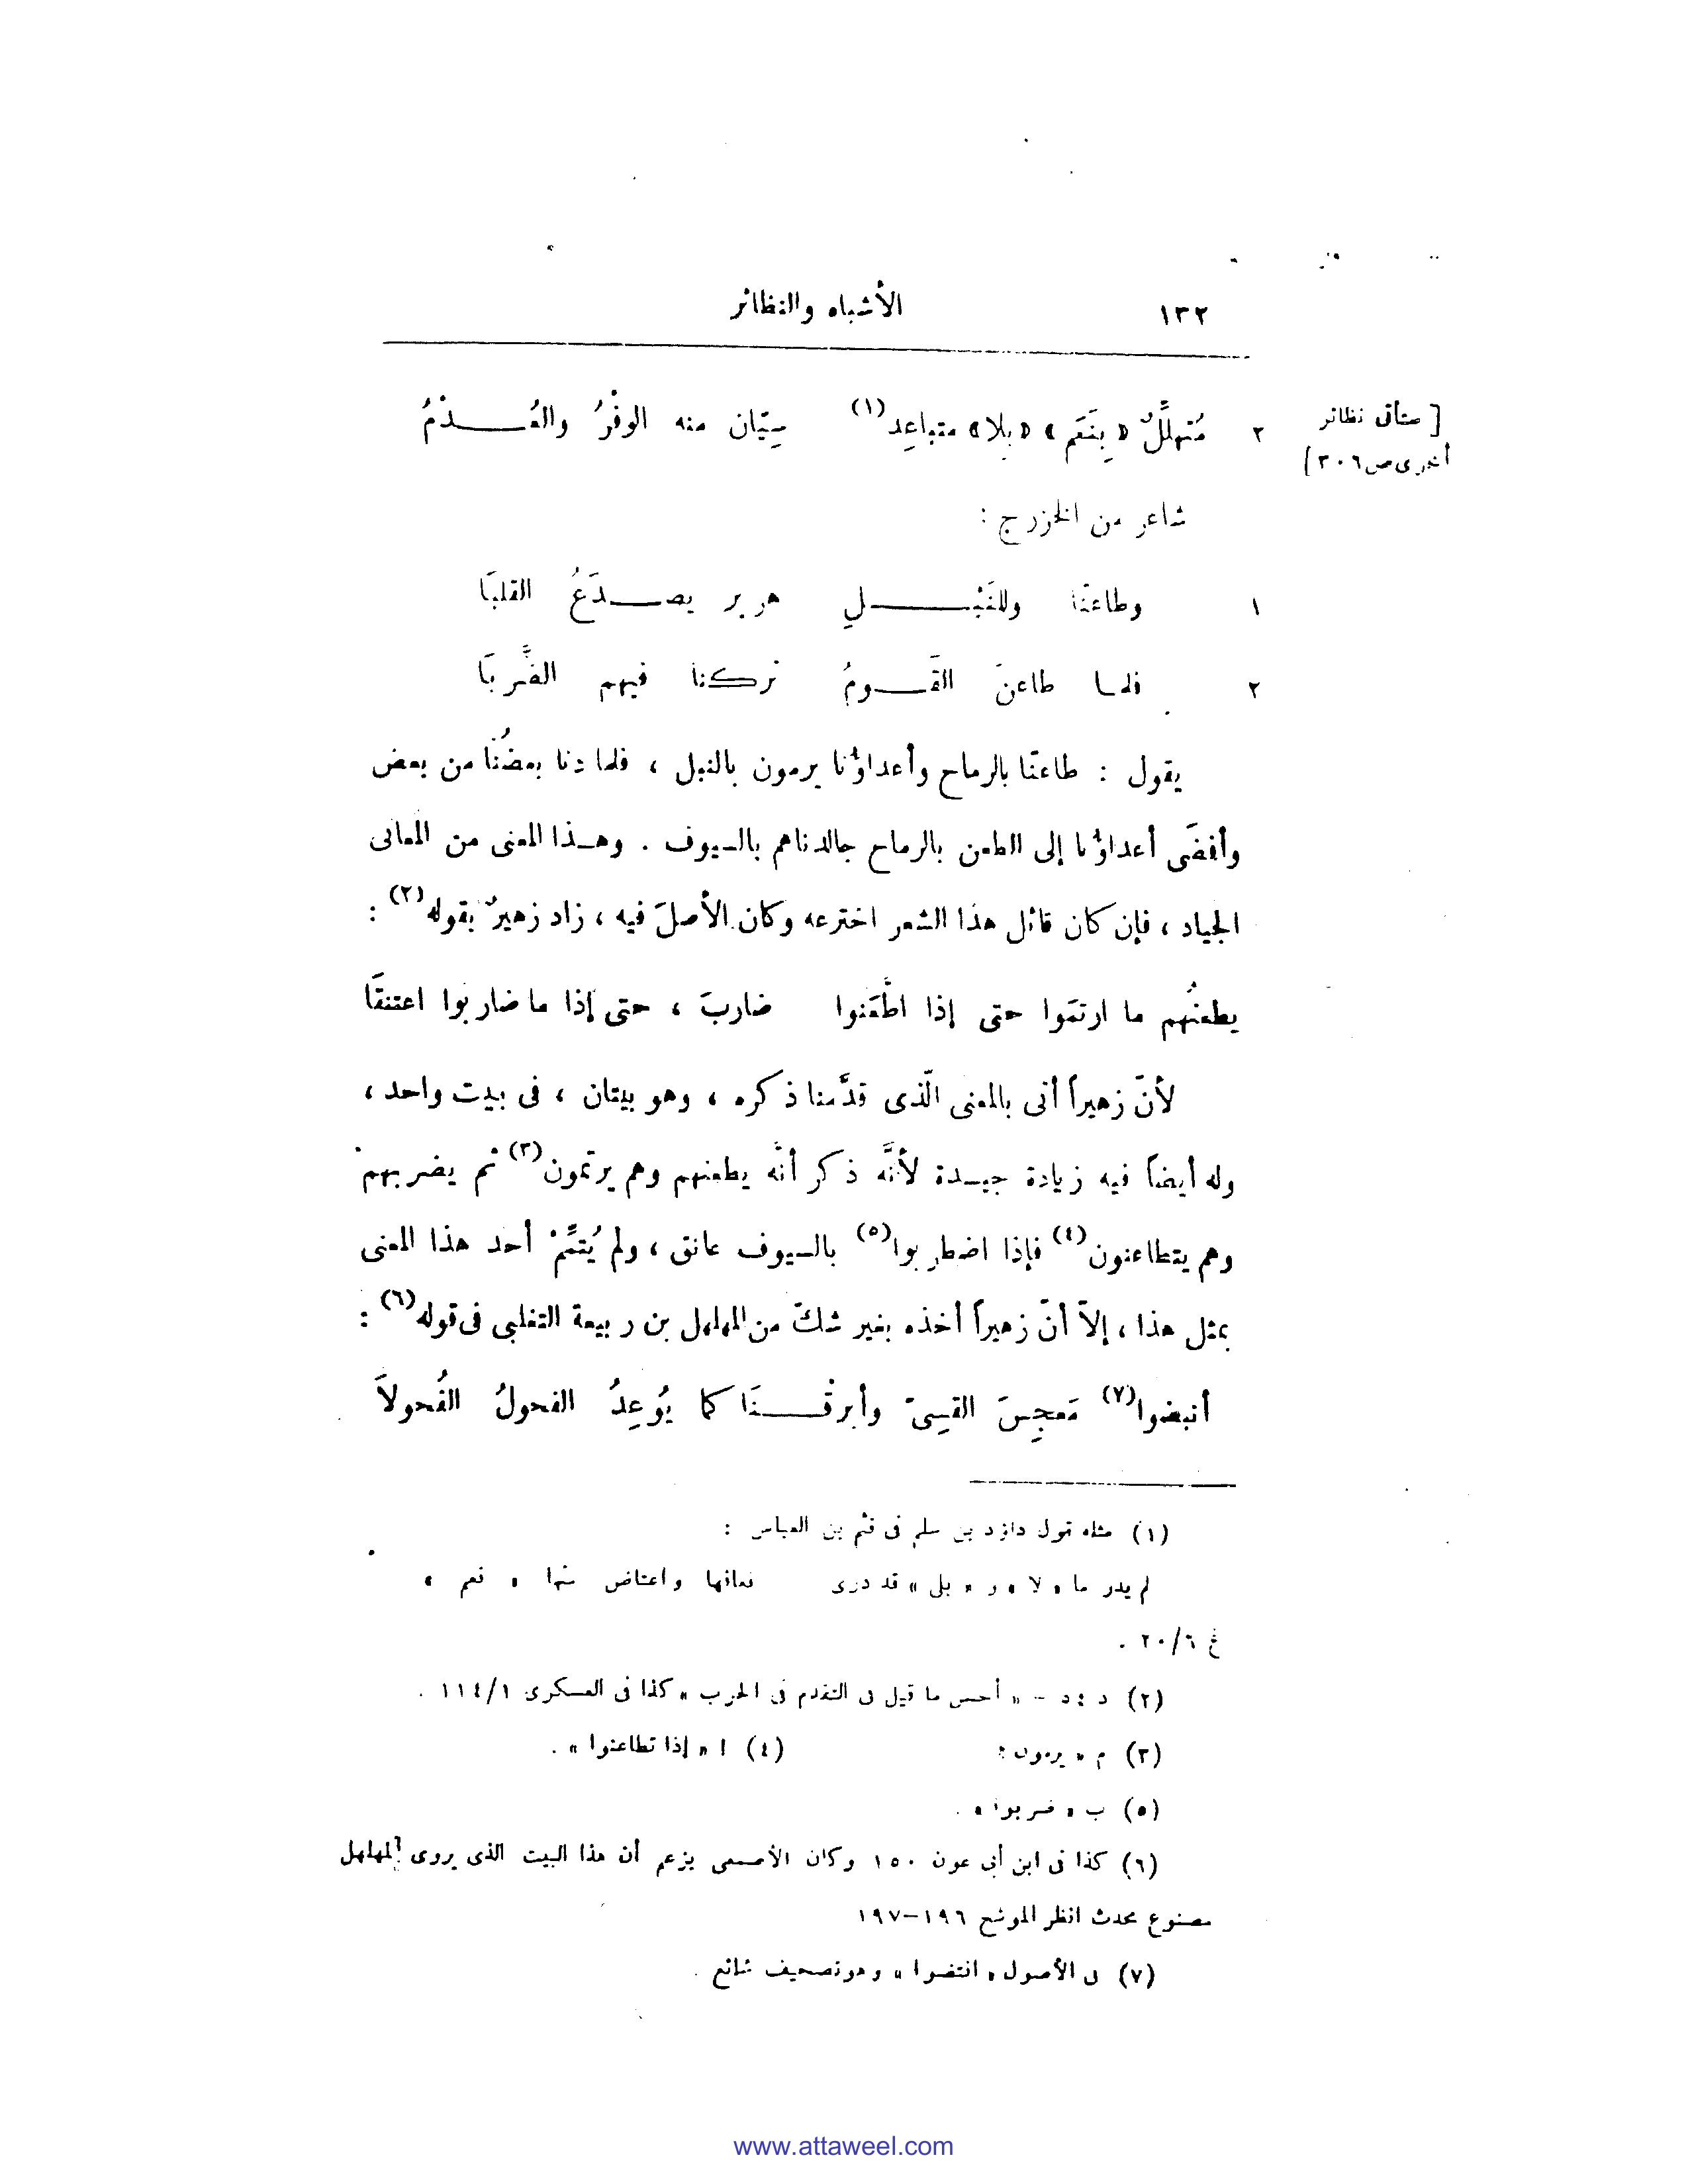 ١٣٢ الأشباه والنظائر
[ ستأتى نظائر
أخرى ص ٢٠٦]
٢ مُتهلِّلٌ « بِنَعَم » « بلا » متباعِد(١) سِيّان منه الوفْرُ والعُــدْمُ
شاعر من الخزرج :
١ وطاعنّا وللنَبْــل هرير يصــدَعُ القلبَا
٢ فلمــا طاعنَ القَــومُ تركنا فيهم الضَّربَا
يقول : طاعنّا بالرماح وأعداؤُنا يرمون بالنبل ، فلما دنا بعضُنا من بعض
وأفضَى أعداؤُنا إلى الطعن بالرماح جالدناهم بالسيوف . وهــذا المعنى من المعانى
الجياد ، فإن كان قائل هذا الشعر اخترعه وكان الأصلَ فيه ، زاد زهيرٌ بقوله(٢) :
يطعنُهم ما ارتمَوا حتى إذا اطَّعَنوا ضاربَ ، حتى إذا ما ضاربوا اعتنقَا
لأنّ زهيراً أتى بالمعنى الّذى قدَّمنا ذكره ، وهو بيتان ، فى بيت واحد ،
وله أيضاً فيه زيادة جيــدة لأنَّه ذكر أنَّه يطعنهم وهم يرتمون(٣) ثم يضربهم
وهم يتطاعنون(٤) فإذا اضطربوا(٥) بالسيوف عانق ، ولم يُتمِّمْ أحد هذا المعنى
بمثل هذا ، إلاّ أنّ زهيراً أخذه بغير شكّ من المهلهل بن ربيعة التغلبى فى قوله(٦) :
أنبضوا(٧) مَعجِسَ القسِىّ وأبرقْــنَا كما يُوعِدُ الفحولُ الفُحولاَ
(١) مثله قول داؤد بن سلم فى قثم بن العباس :
لم يدر ما « لا » و « بلى » قد درى فعافها واعتاض منها « نعم »
غ ٢٠/٦ .
(٢) د ؛ د – « أحسن ما قيل فى التقدم فى الحرب » كذا فى العسكرى ١١٤/١ .
(٣) م « يرمون »
(٤) ا « إذا تطاعنوا » .
(٥) ب « ضربوا » .
(٦) كذا فى ابن أبى عون ١٥٠ وكان الأصمعى يزعم أن هذا البيت الذى يروى لمهلهل
مصنوع محدث انظر الموشح ١٩٦–١٩٧
(٧) فى الأصول « انتضوا » وهو تصحيف شائع .
www.attaweel.com